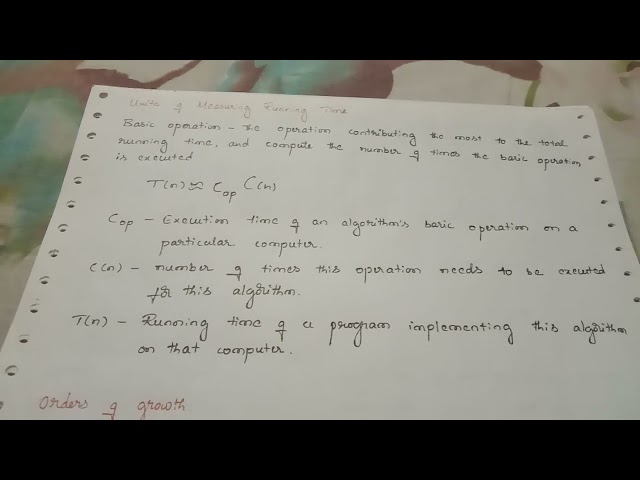 Units of Measuring Running Time
Basic operation - the operation contributing the most to the total
running time, and compute the number of times the basic operation
is executed
T(n) ≈ Cop C(n)
Cop - Execution time of an algorithm's basic operation on a
particular computer.
C(n) - number of times this operation needs to be executed
for this algorithm.
T(n) - Running time of a program implementing this algorithm
on that computer.
Orders of growth